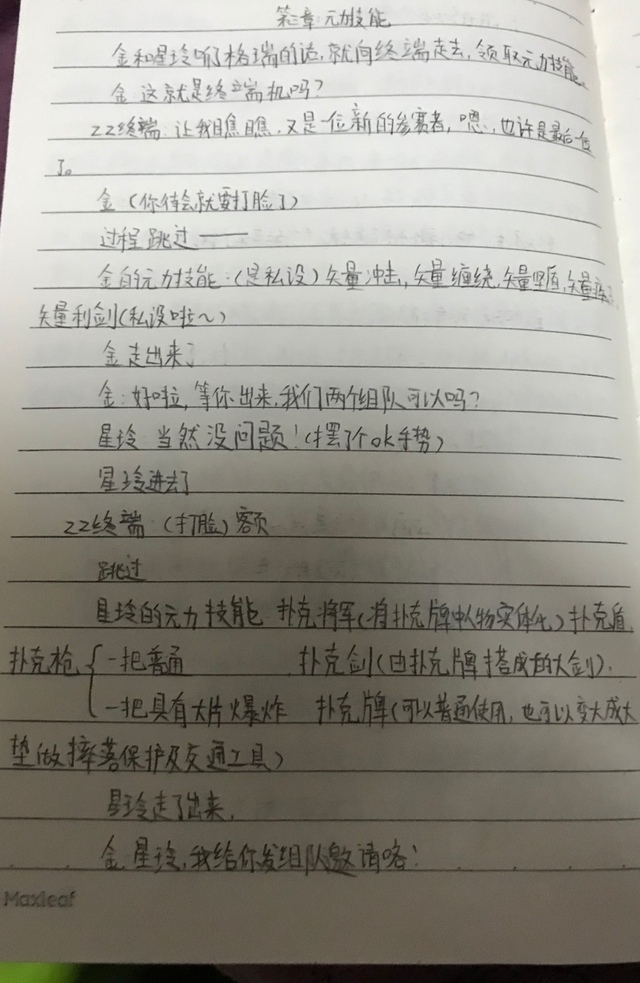 第三章:元力技能
金和星玲听了格瑞的话,就向终端走去,领取元力技能。
金:这就是终端机吗?
ZZ终端:让我瞧瞧,又是一位新的参赛者,嗯,也许是最后一位
了。
金:(你待会就要打脸了)
过程跳过——
金的元力技能:(是私设)矢量冲击,矢量缠绕,矢量坚盾,矢量
矢量利剑(私设啦~)
金走出来了
金:好啦,等你出来,我们两个组队可以吗?
星玲:当然没问题!(摆了个ok手势)
星玲进去了
ZZ终端:(打脸)额页
跳过
星玲的元力技能:扑克将军(将扑克牌中人物实体化)扑克盾
扑克枪{一把普通 扑克剑(由扑克牌搭成的大剑).
一把具有大片爆炸 扑克牌(可以普通使用,也可以变大成大
垫做摔落保护及交通工具)
星玲走了出来,
金:星玲,我给你发组队邀请咯!
Maxleaf